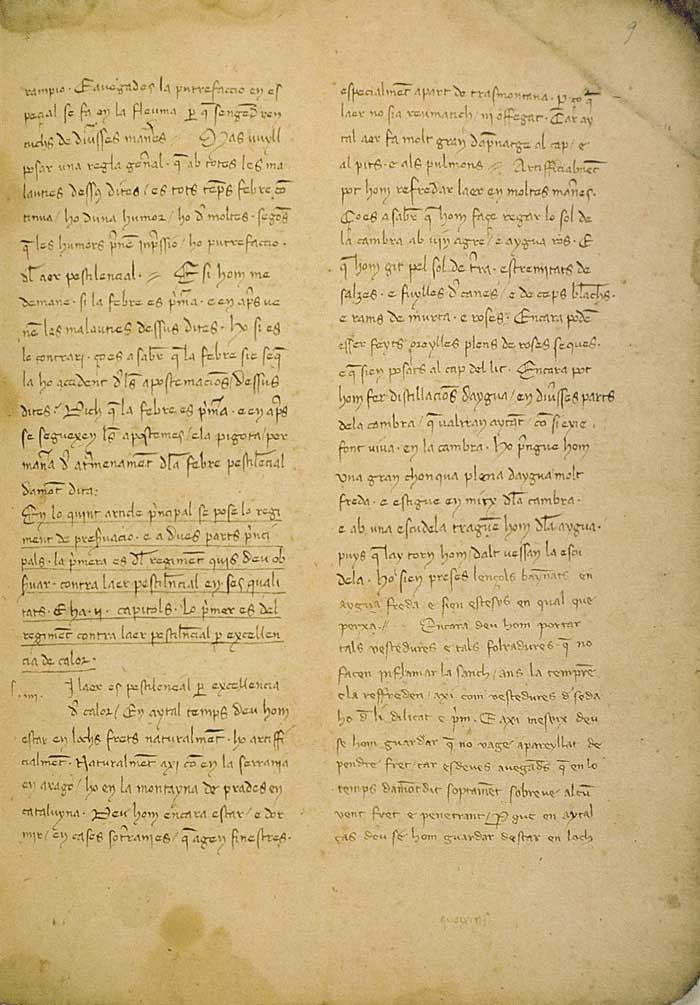 9
rampio · E auegades la putrefaccio en es
pecial se fa en la fleuma per q̄ sengendren
cuchs de diũsses man̄es Mas vuyll
posar una regla geñal · que ab totes les ma
lauties dessꝰ dites / es tots temps febre cō
tinua / ho duna humor / ho d̓ moltes · segōs
que les humors pñen inp̄ssio / ho putrefaccio ·
dl̄ aer pestilencial · E si hom me
demane · si la febre es pim̄a · e en ap̄s ve
nen les malauties dessus dites · ho si es
lo contrari / ço es a saber q̄ la febre sie seq̄
la ho accident dl̄s apostemacions dessus
dites : Dich que la febre es p̄m̄a · e en ap̄s
se seguexen los apostemes / e la pigota / per
man̄a d̓ dl̄a febre pestil̄cial
damont dita :
En lo quint article p̄ncipal se pose lo regi
ment de p̄seruacio · e a dues parts p̄nci
pals · la p̄mera es dl̄ regiment quis deu ob
seruar · contra laer pestil̄ncial en ses quali
tats · E ha · ij · capitols · Lo p̄mer es del
regiment contra laer pestil̄ncial per excellen
cia de calor :
Si laer es pestilencal per excellencia
d̓ calor / En aytal temps deu hom
estar en lochs frets naturalment · ho artiffi
cialment · Naturalment axi com en la serrania
en arago / ho en la montayna de prades en
cataluyna · Deu hom encara estar / e dor
mir / en cases sotranies / que agen finestres ·
especialment apart de trasmontana · per ço q̄
laer no sia reumatich / ni offegat · Car ay
tal aer fa molt gran dapnatge al cap / e
al pits · e als pulmons Artifficialment
pot hom refredar laer en moltes man̄es ·
Ço es a saber q̄ hom façe regar lo sol de
la cambra ab vin agre / e aygua ros · E
q̄ hom git pel sol de t̄ra · estremitats de
salzes · e fuylles d̓ canes / e de ceps blāchs ·
e rams de murta · e roses · Encara poden
esser feyts coxylles plens de roses seques ·
e que sien posats al cap del lit · Encara pot
hom fer distillacions daygua / en diũsses parts
dela cambra / que valrran aytant / com si exie
font viua · en la cambra · Ho prengue hom
una gran chonqua plena daygua molt
freda · e estigue en mitx dl̄a cambra ·
e ab una escudela trague hom dl̄a aygua ·
puys que lay torn hom dalt vessan la escu
dela · Ho sien preses lençols baynats en
aygua freda e sien estesos en qual que
porxa · Encara deu hom portar
tals vestedures e tals folradures · q̄ no
facen inflamar la sanch / ans la tempren
e la reffreden / axi com vestedures d̓ seda
ho d̓ li dilicat e prim · E axi meseix deu
se hom guardar que no vage apareyllat de
pendre fret / car esdeues auegades que en lo
temps damontdit soptament sobreue alcun
vent fret e penetrant / Per que en aytal
cas deu se hom guardar destar en loch